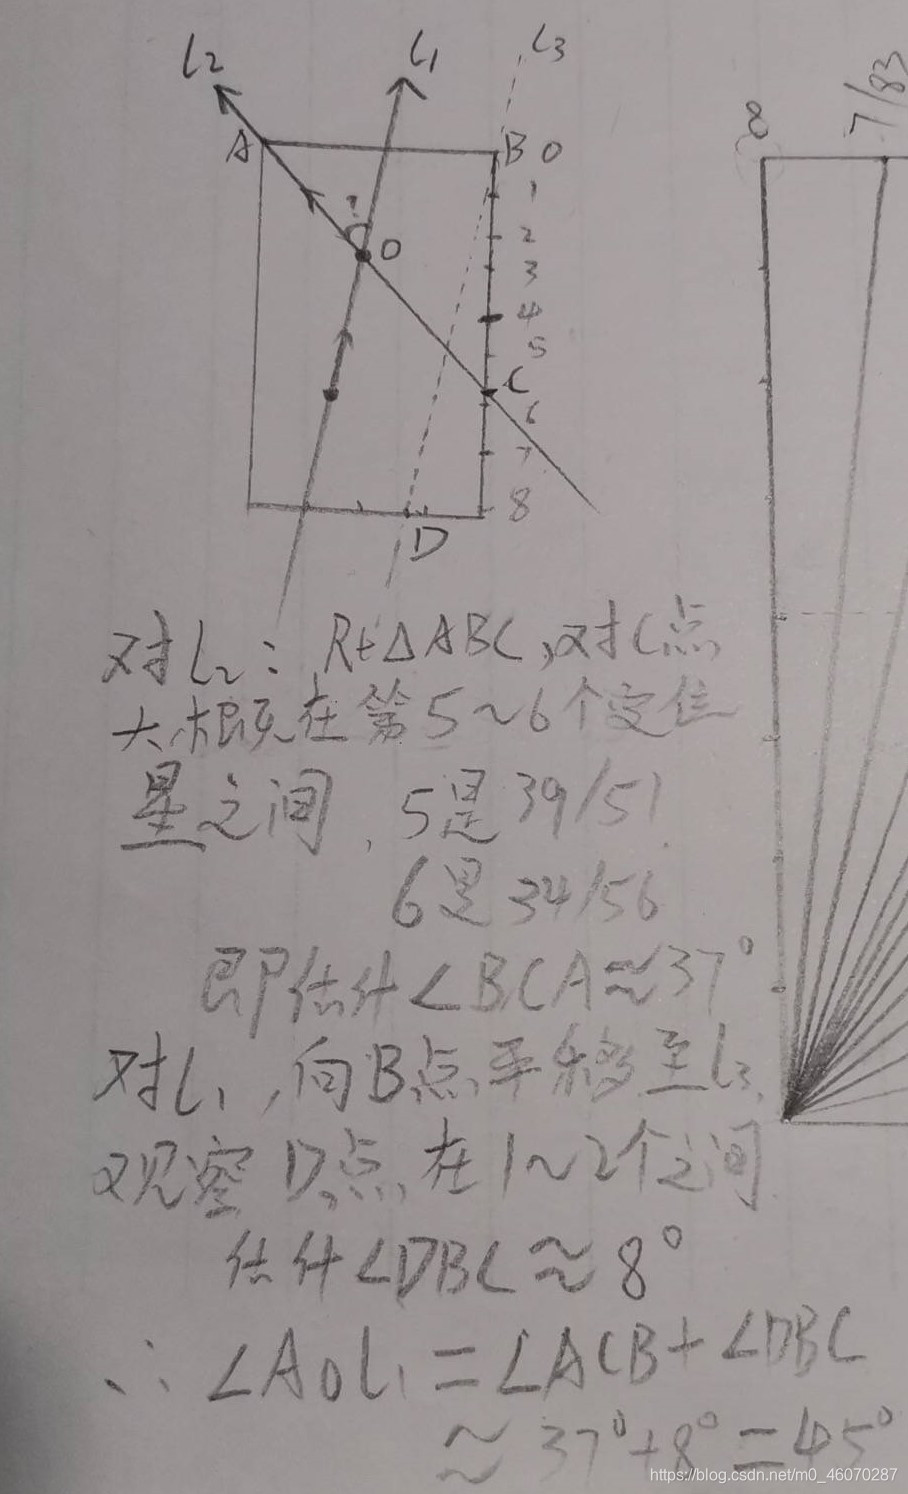 l₂
l₁
l₃
A
B 0
1
2
3
4
5
C
6
7
8
?
O
D
8
7/83
对l₂: Rt△ABC,对C点
大概在第5~6个定位
星之间,5是39/51
6是34/56
即估计∠BCA≈37°
对l₁,向B点平移至l₃,
观察D点,在1~2个之间
估计∠DBC≈8°
∴∠AOl₁=∠ACB+∠DBC
≈37°+8°=45°
https://blog.csdn.net/m0_46070287